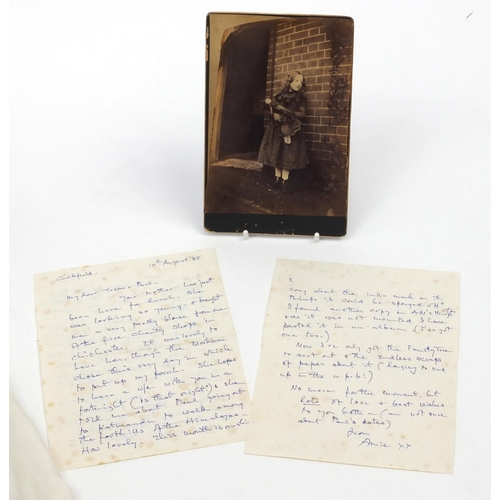 Cuckfield. 10th August '88
My dear Teresa & Paul,
Your Mother has just
been here for lunch. She
was looking so young & bright
in a very pretty dress from
the five charity shops in
Chichester. It was lovely to
have her, though the
chose this very day in which
to put up my porch. She hopes
to have a few in a
fortnight (is that right) & she
told me about Paul going
to Katmandu to walk
the foothills of the Himalayas.
How lovely. This month is
2
say what the ink mark on it.
Perhaps it could be sponged off.
I found another copy in
& as it was not mounted I have
pasted it in an album (I've got
one too).
Now I've only got the Family Tree
to sort out & the endless scraps
of paper about it (laying to one
up in the
No more for the moment, but
lots of love & best wishes
to you both & (am not sure
about Paul's dates)
from
Annie xx